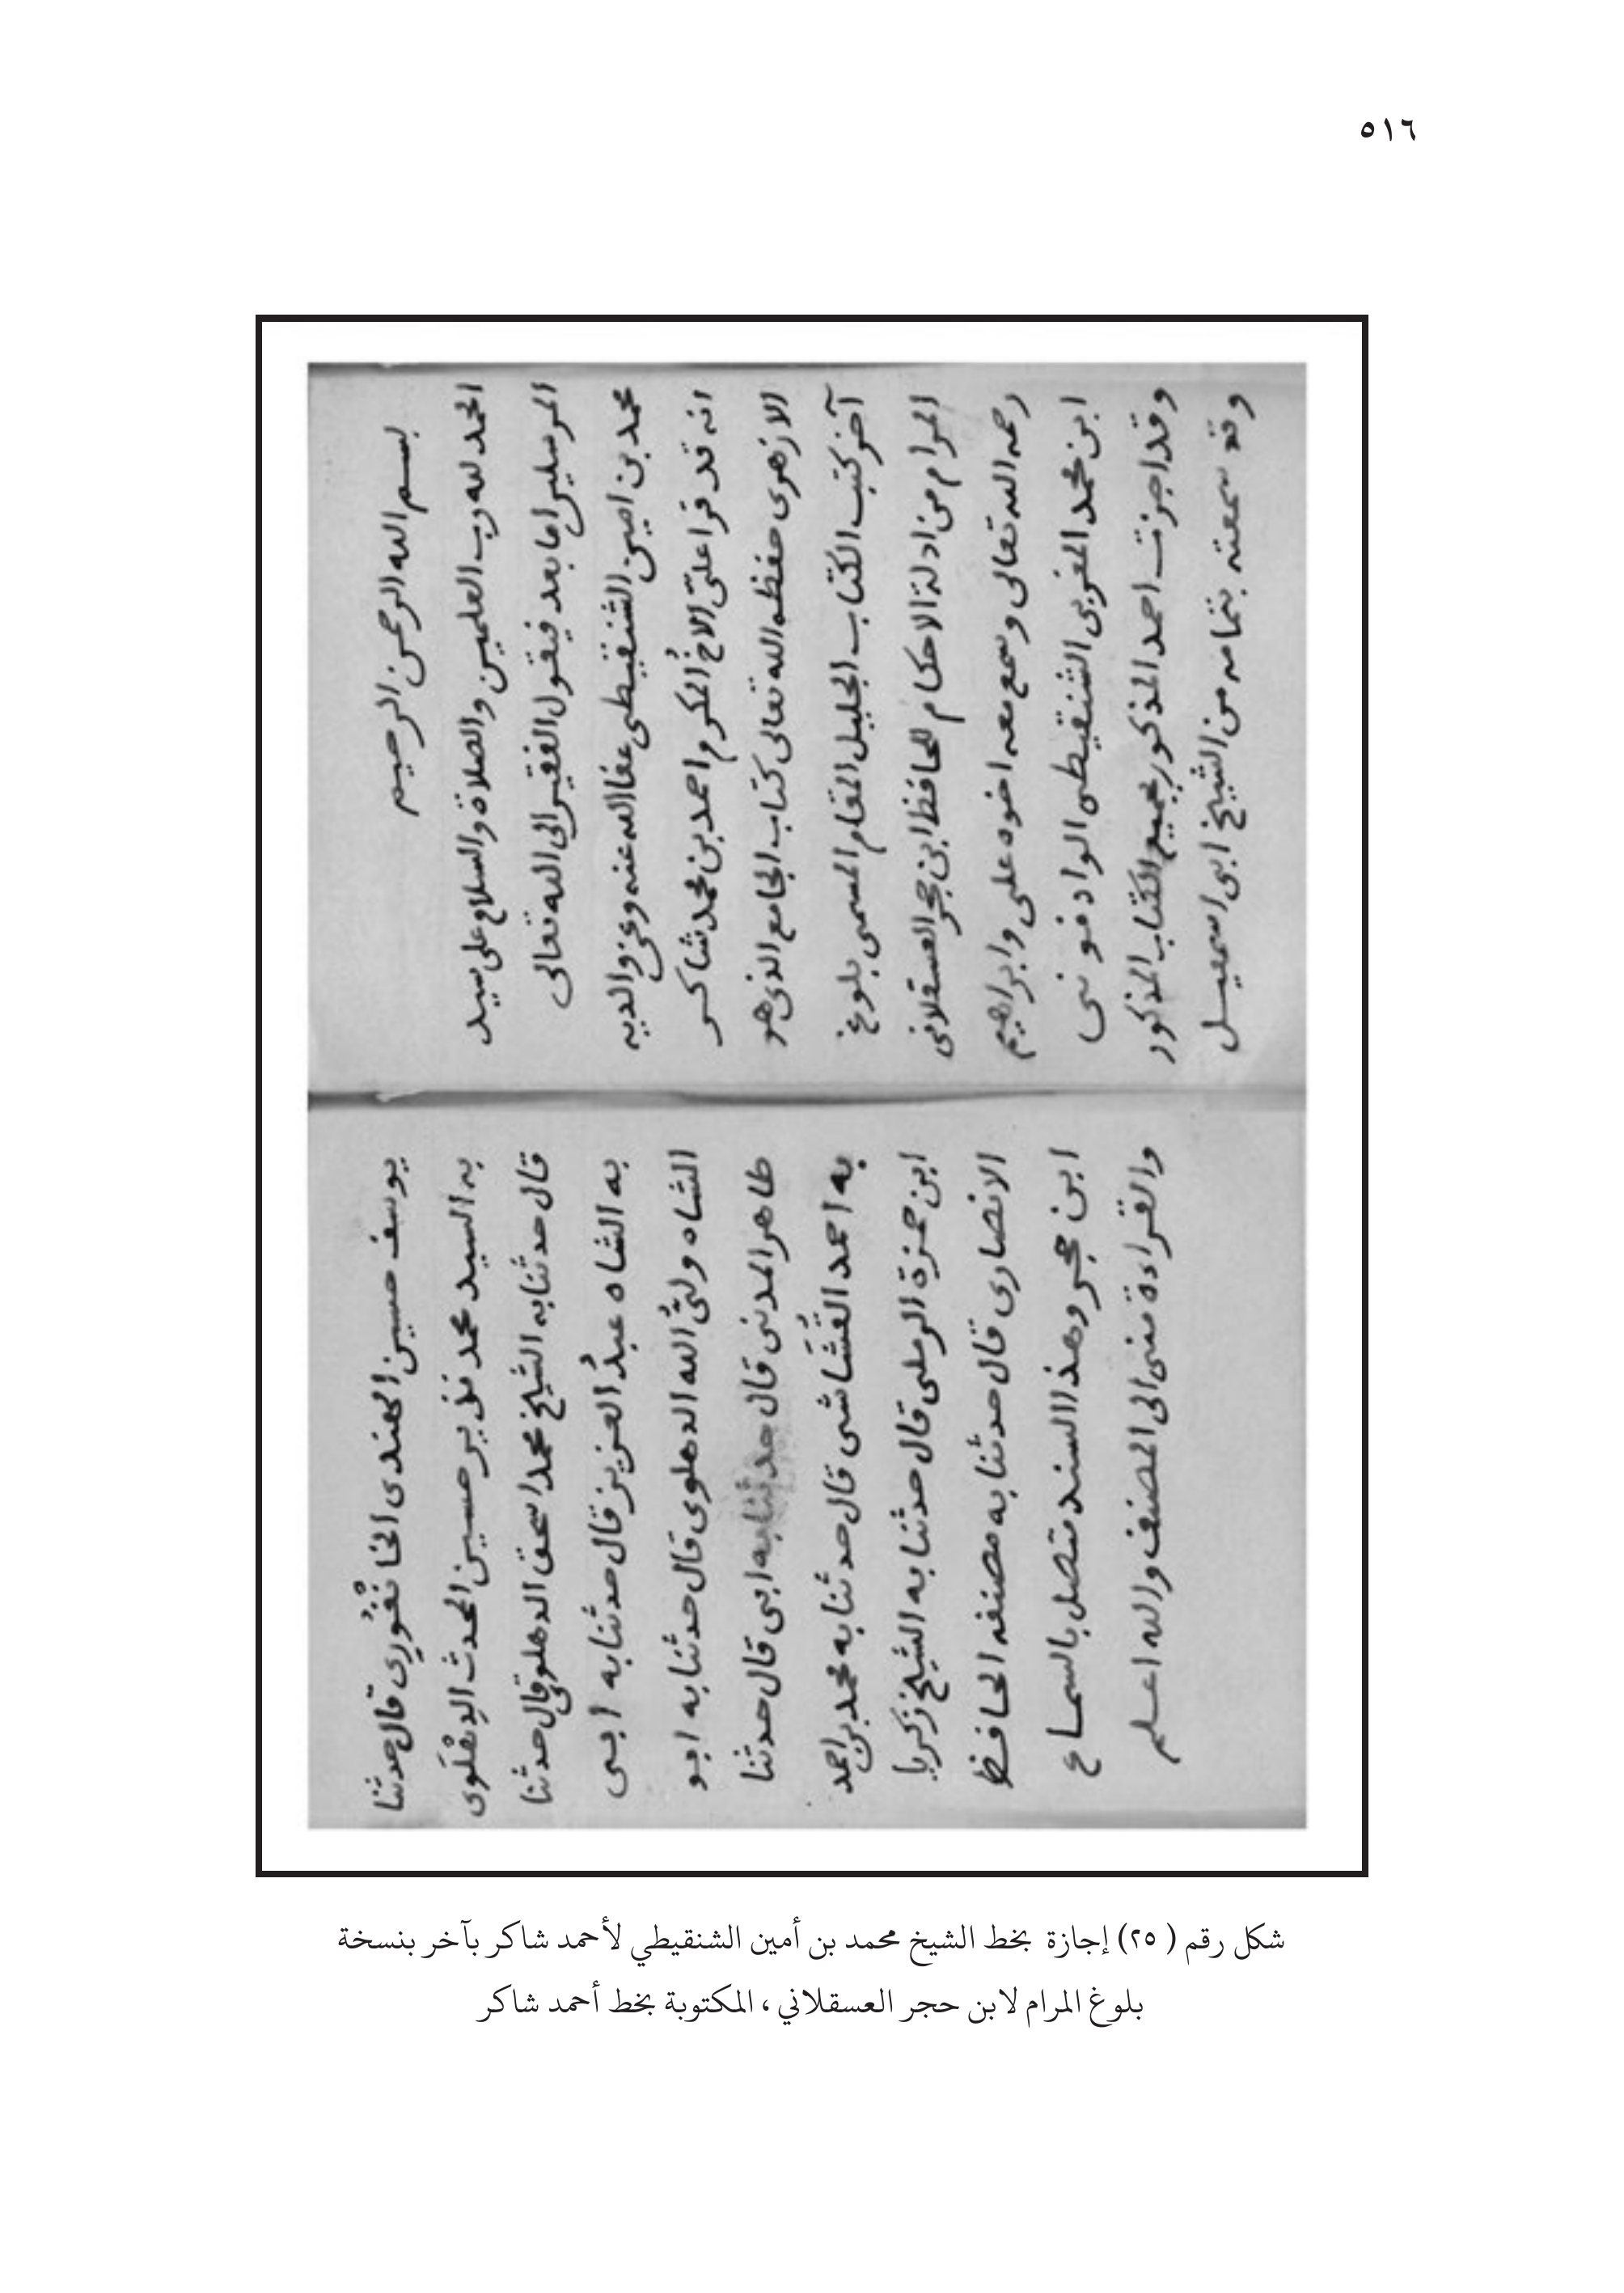 ٥١٦
بسم الله الرحمن الرحيم
الحمد لله رب العلمين والصلاة والسلام على سيد
المرسلين اما بعد فيقول الفقير الى الله تعالى
محمد بن امين الشنقيطى عفا الله عنه وعن والديه
انه قد قرا علىّ الاخُ المكرم احمد بن محمد شاكر
الازهرى حفظه الله تعالى كتاب الجامع الذى هو
آخر كتب الكتاب الجليل المقام المسمى بلوغ
المرام من ادلة الاحكام للحافظ ابن حجر العسقلانى
رحمه الله تعالى وسمع معه اخوه على وابراهيم
ابن محمد المغربى الشنقيطى الوادفونى
وقد اجزت احمد المذكور بجميع الكتاب المذكور
وقد سمعته بتمامه من الشيخ ابى اسمعيل
يوسف حسين الهندى الخانفُورِى قال حدثنا
به السيد محمد نذير حسين المحدث الدِهْلَوى
قال حدثنا به الشيخ محمد اسحق الدهلوى قال حدثنا
به الشاه عبدُ العزيز قال حدثنا به ابى
الشاه ولىُّ الله الدهلوى قال حدثنا به ابو
طاهر المدنى قال حدثنا به ابى قال حدثنا
به احمد القُشَاشى قال حدثنا به محمد بن احمد
ابن حمزة الرملى قال حدثنا به الشيخ زكريا
الانصارى قال حدثنا به مصنفه الحافظ
ابن حجر وهذا السند متصل بالسماع
والقراءة منى الى المصنف والله اعلم
شكل رقم ( ٢٥) إجازة بخط الشيخ محمد بن أمين الشنقيطي لأحمد شاكر بآخر بنسخة
بلوغ المرام لابن حجر العسقلاني ، المكتوبة بخط أحمد شاكر